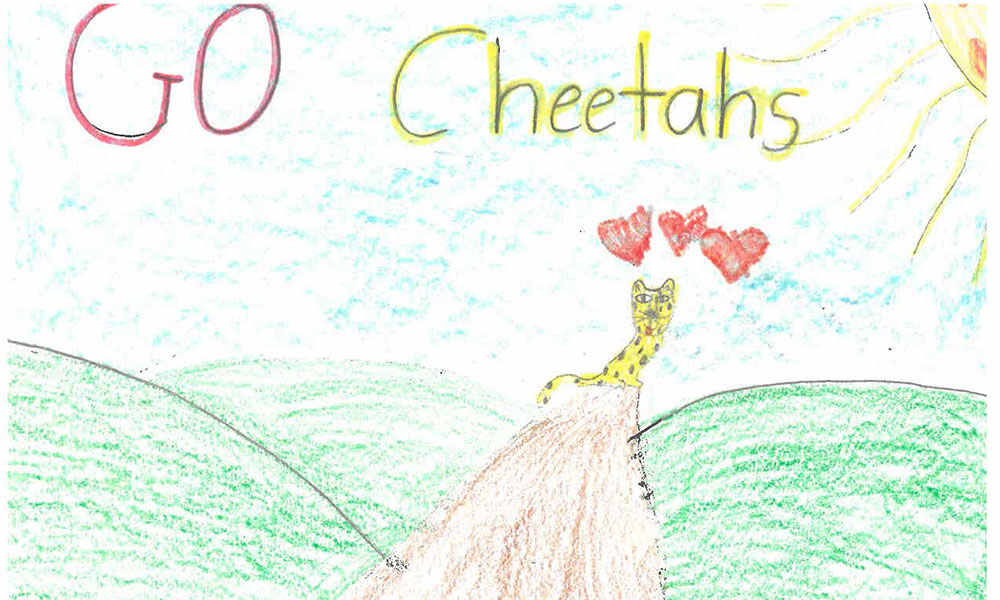 GO Cheetahs